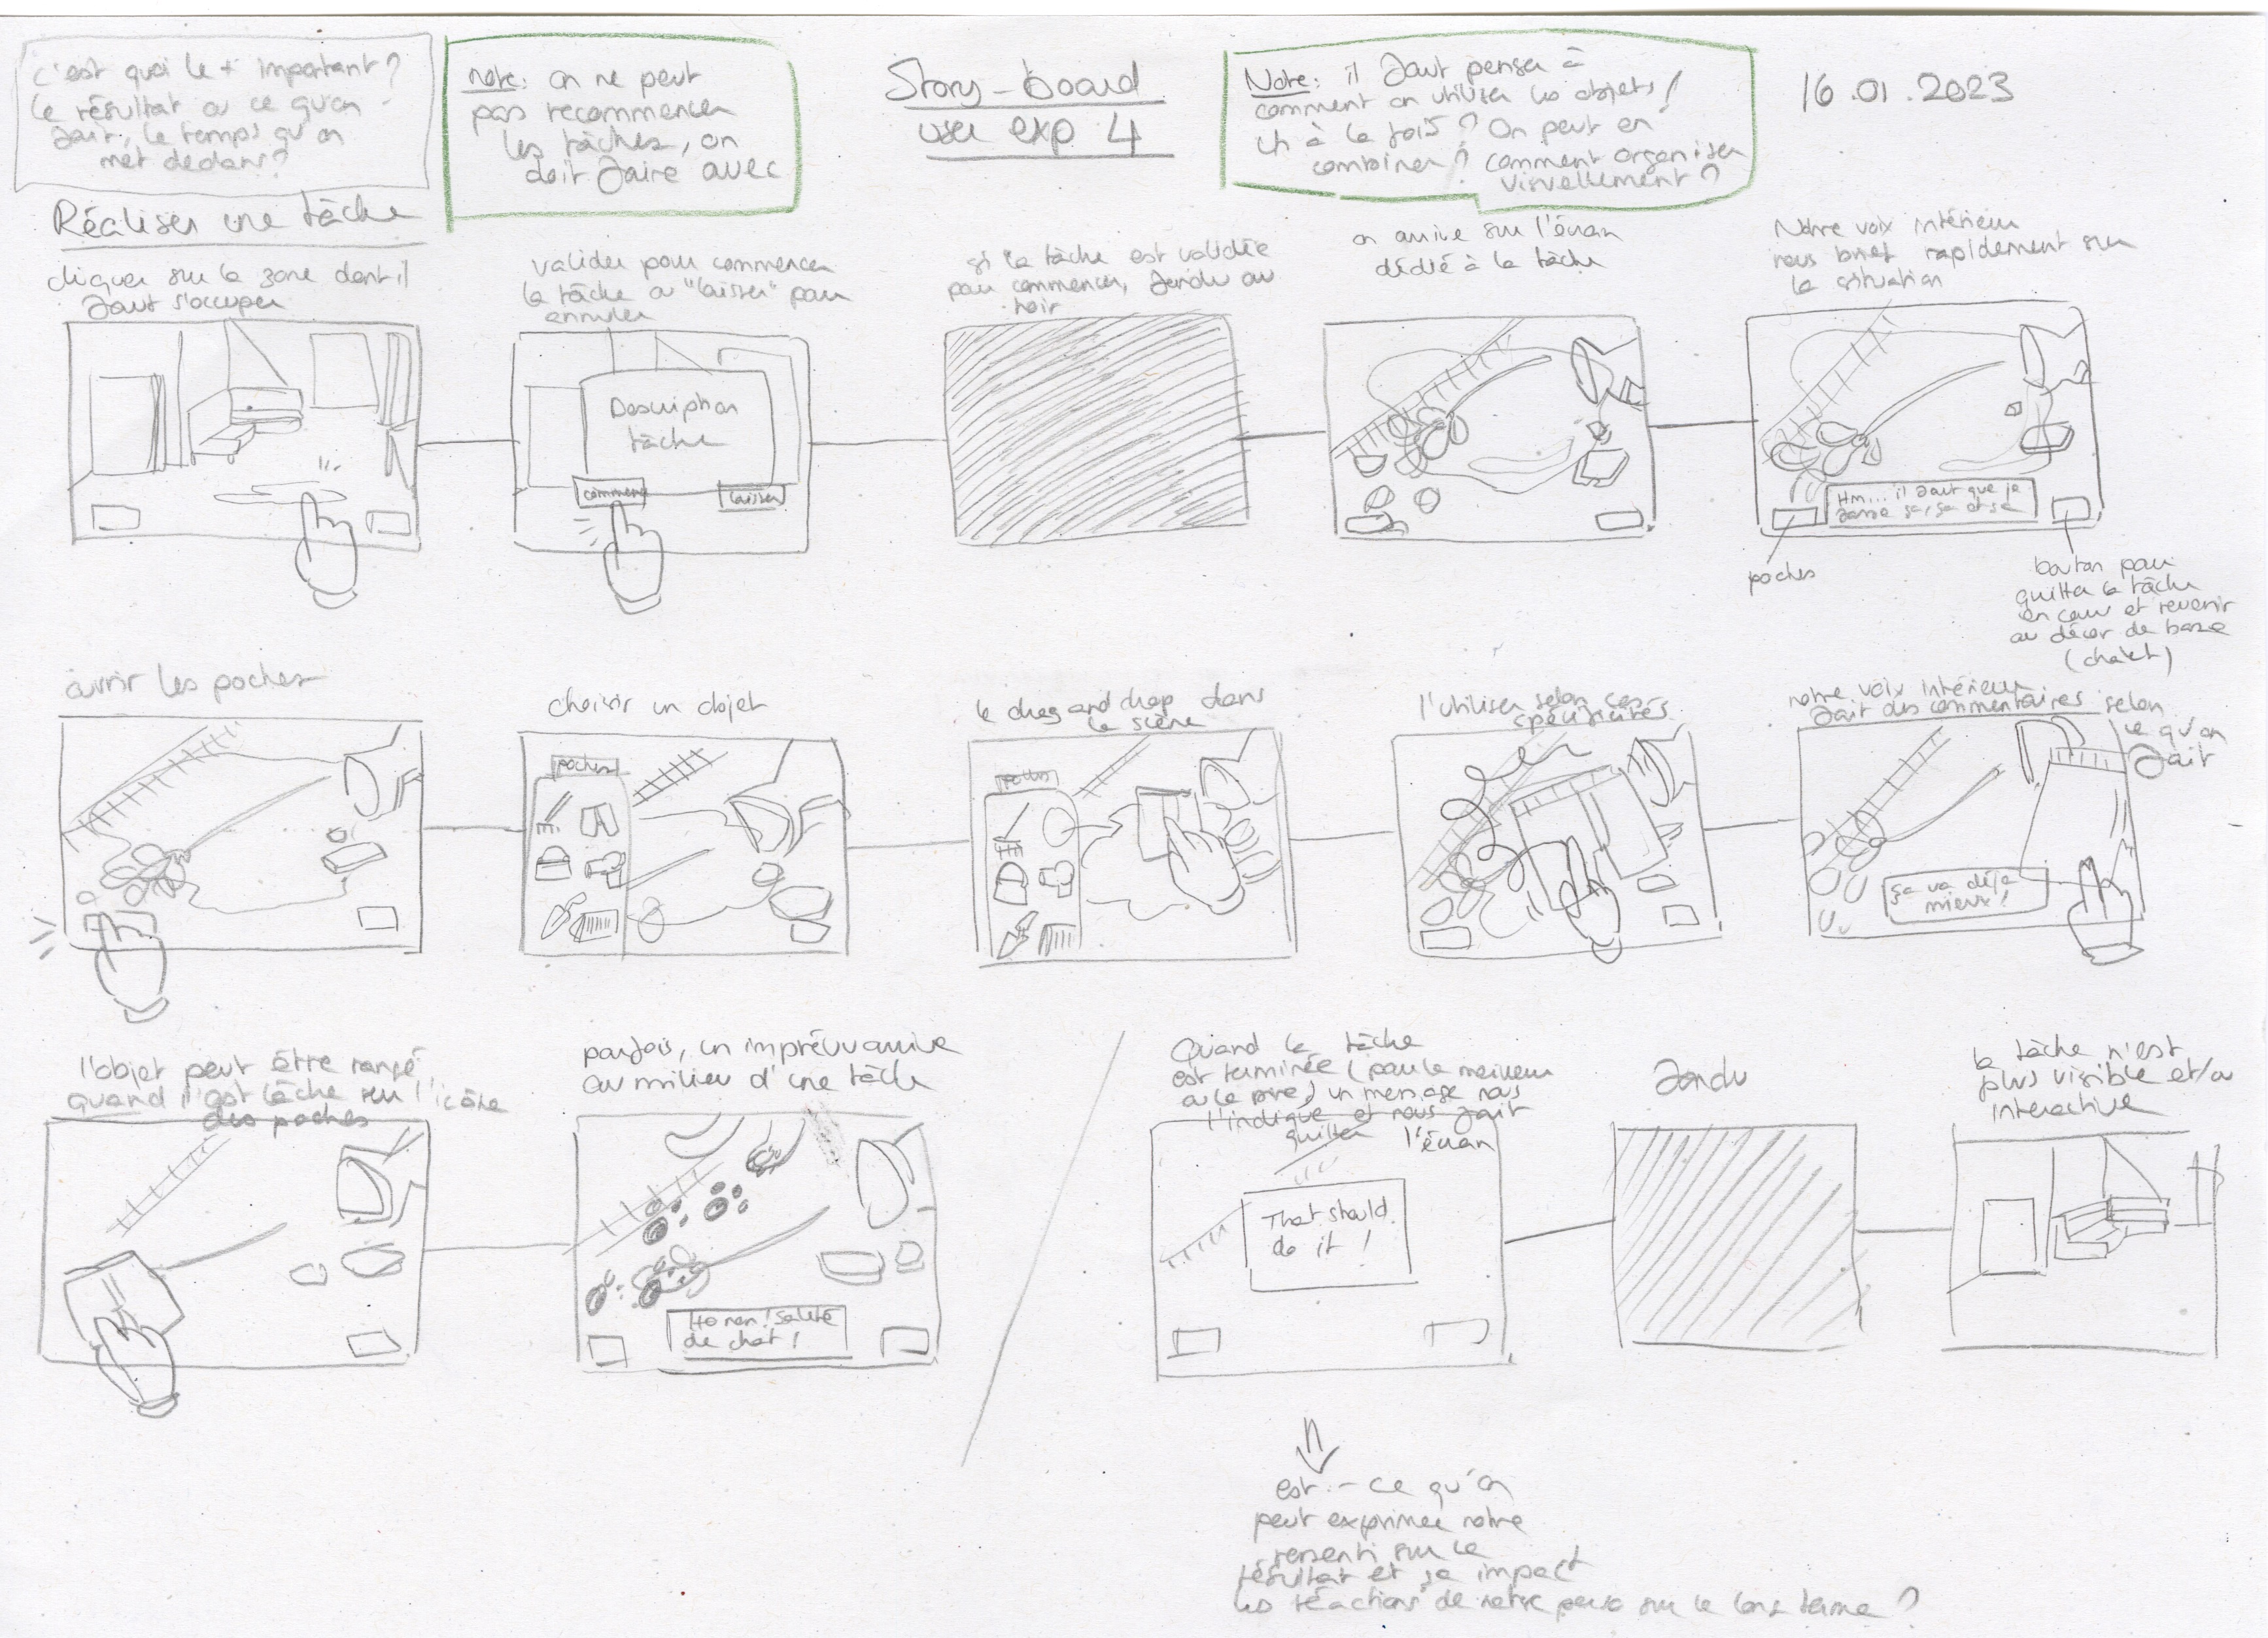 c'est quoi le + important?
le résultat ou ce qu'on
fait, le temps qu'on
met dedans?
note: on ne peut
pas recommencer
les tâches, on
doit faire avec
Story-board
user exp 4
Note: il faut penser à
comment on utilise les objets!
un à la fois? On peut en
combiner? comment organiser
visuellement?
16.01.2023
Réaliser une tâche
cliquer sur la zone dont il
faut s'occuper
valider pour commencer
la tâche ou "laisser" pour
annuler
Description
tâche
commencer
laisser
si la tâche est validée
pour commencer, fondu au
noir
on arrive sur l'écran
dédié à la tâche
Notre voix intérieure
nous brief rapidement sur
la situation
Hm... il faut que je
fasse ça, ça et ça
poches
bouton pour
quitter la tâche
en cours et revenir
au décor de base
(chalet)
ouvrir les poches
choisir un objet
poches
le drag and drop dans
la scène
poches
l'utiliser selon ces
spécificités
notre voix intérieure
fait des commentaires selon
ce qu'on
fait
ça va déjà
mieux!
l'objet peut être rangé
quand il est lâché sur l'icône
des poches
parfois, un imprévu arrive
au milieu d'une tâche
Ho non! Saleté
de chat!
Quand la tâche
est terminée (pour le meilleur
ou le pire) un message nous
l'indique et nous fait
quitter l'écran
That should
do it!
fondu
la tâche n'est
plus visible et/ou
interactive
est-ce qu'on
peut exprimer notre
ressenti sur le
résultat et ça impact
les réactions de notre perso sur le long terme?